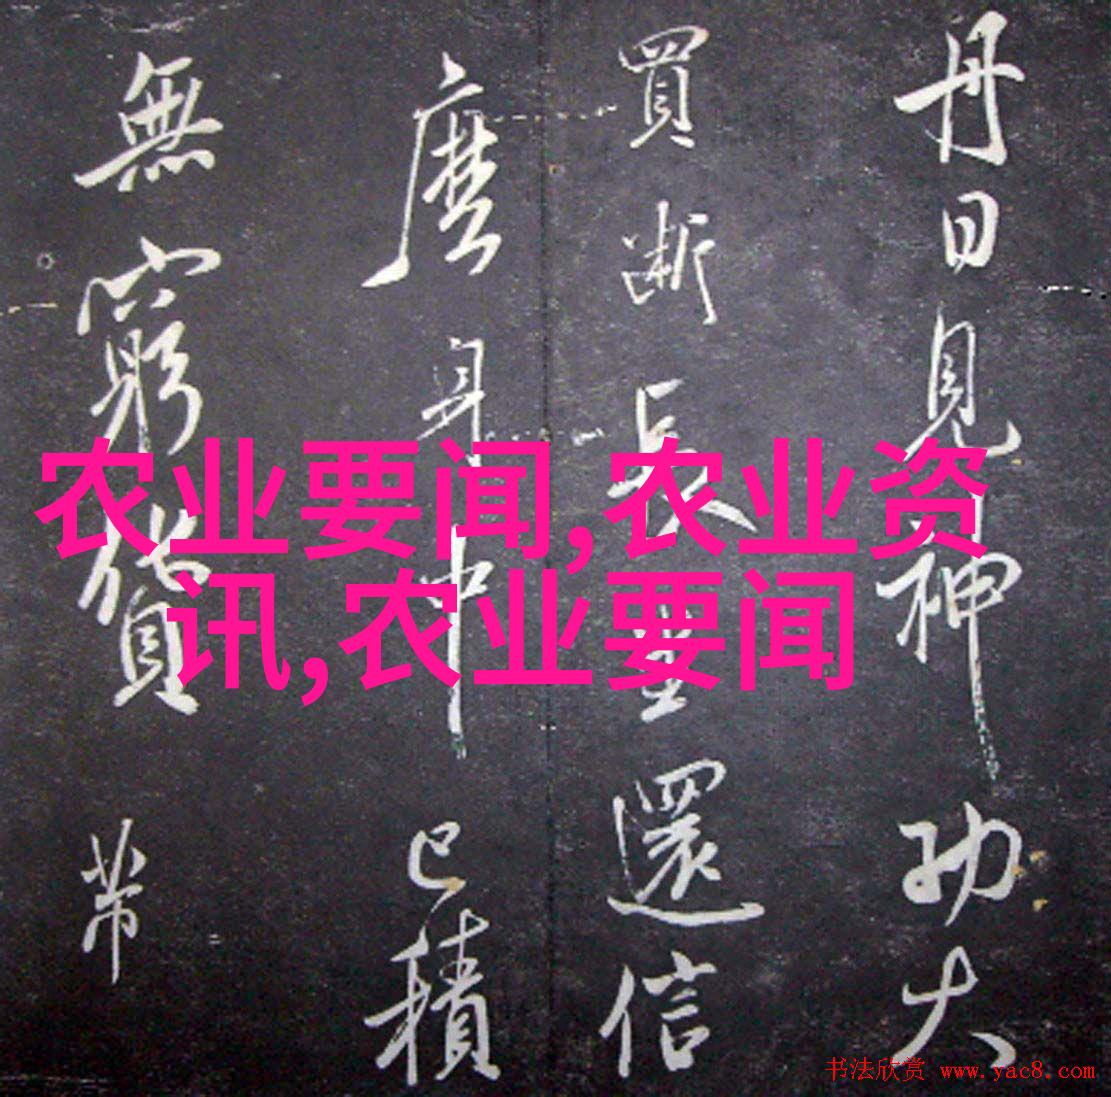 丹日見神功大
買斷長生還信
麼身中已積
無窮貨帶
农业要闻,农业资
讯,农业要闻
书法欣赏 www.yac8.com